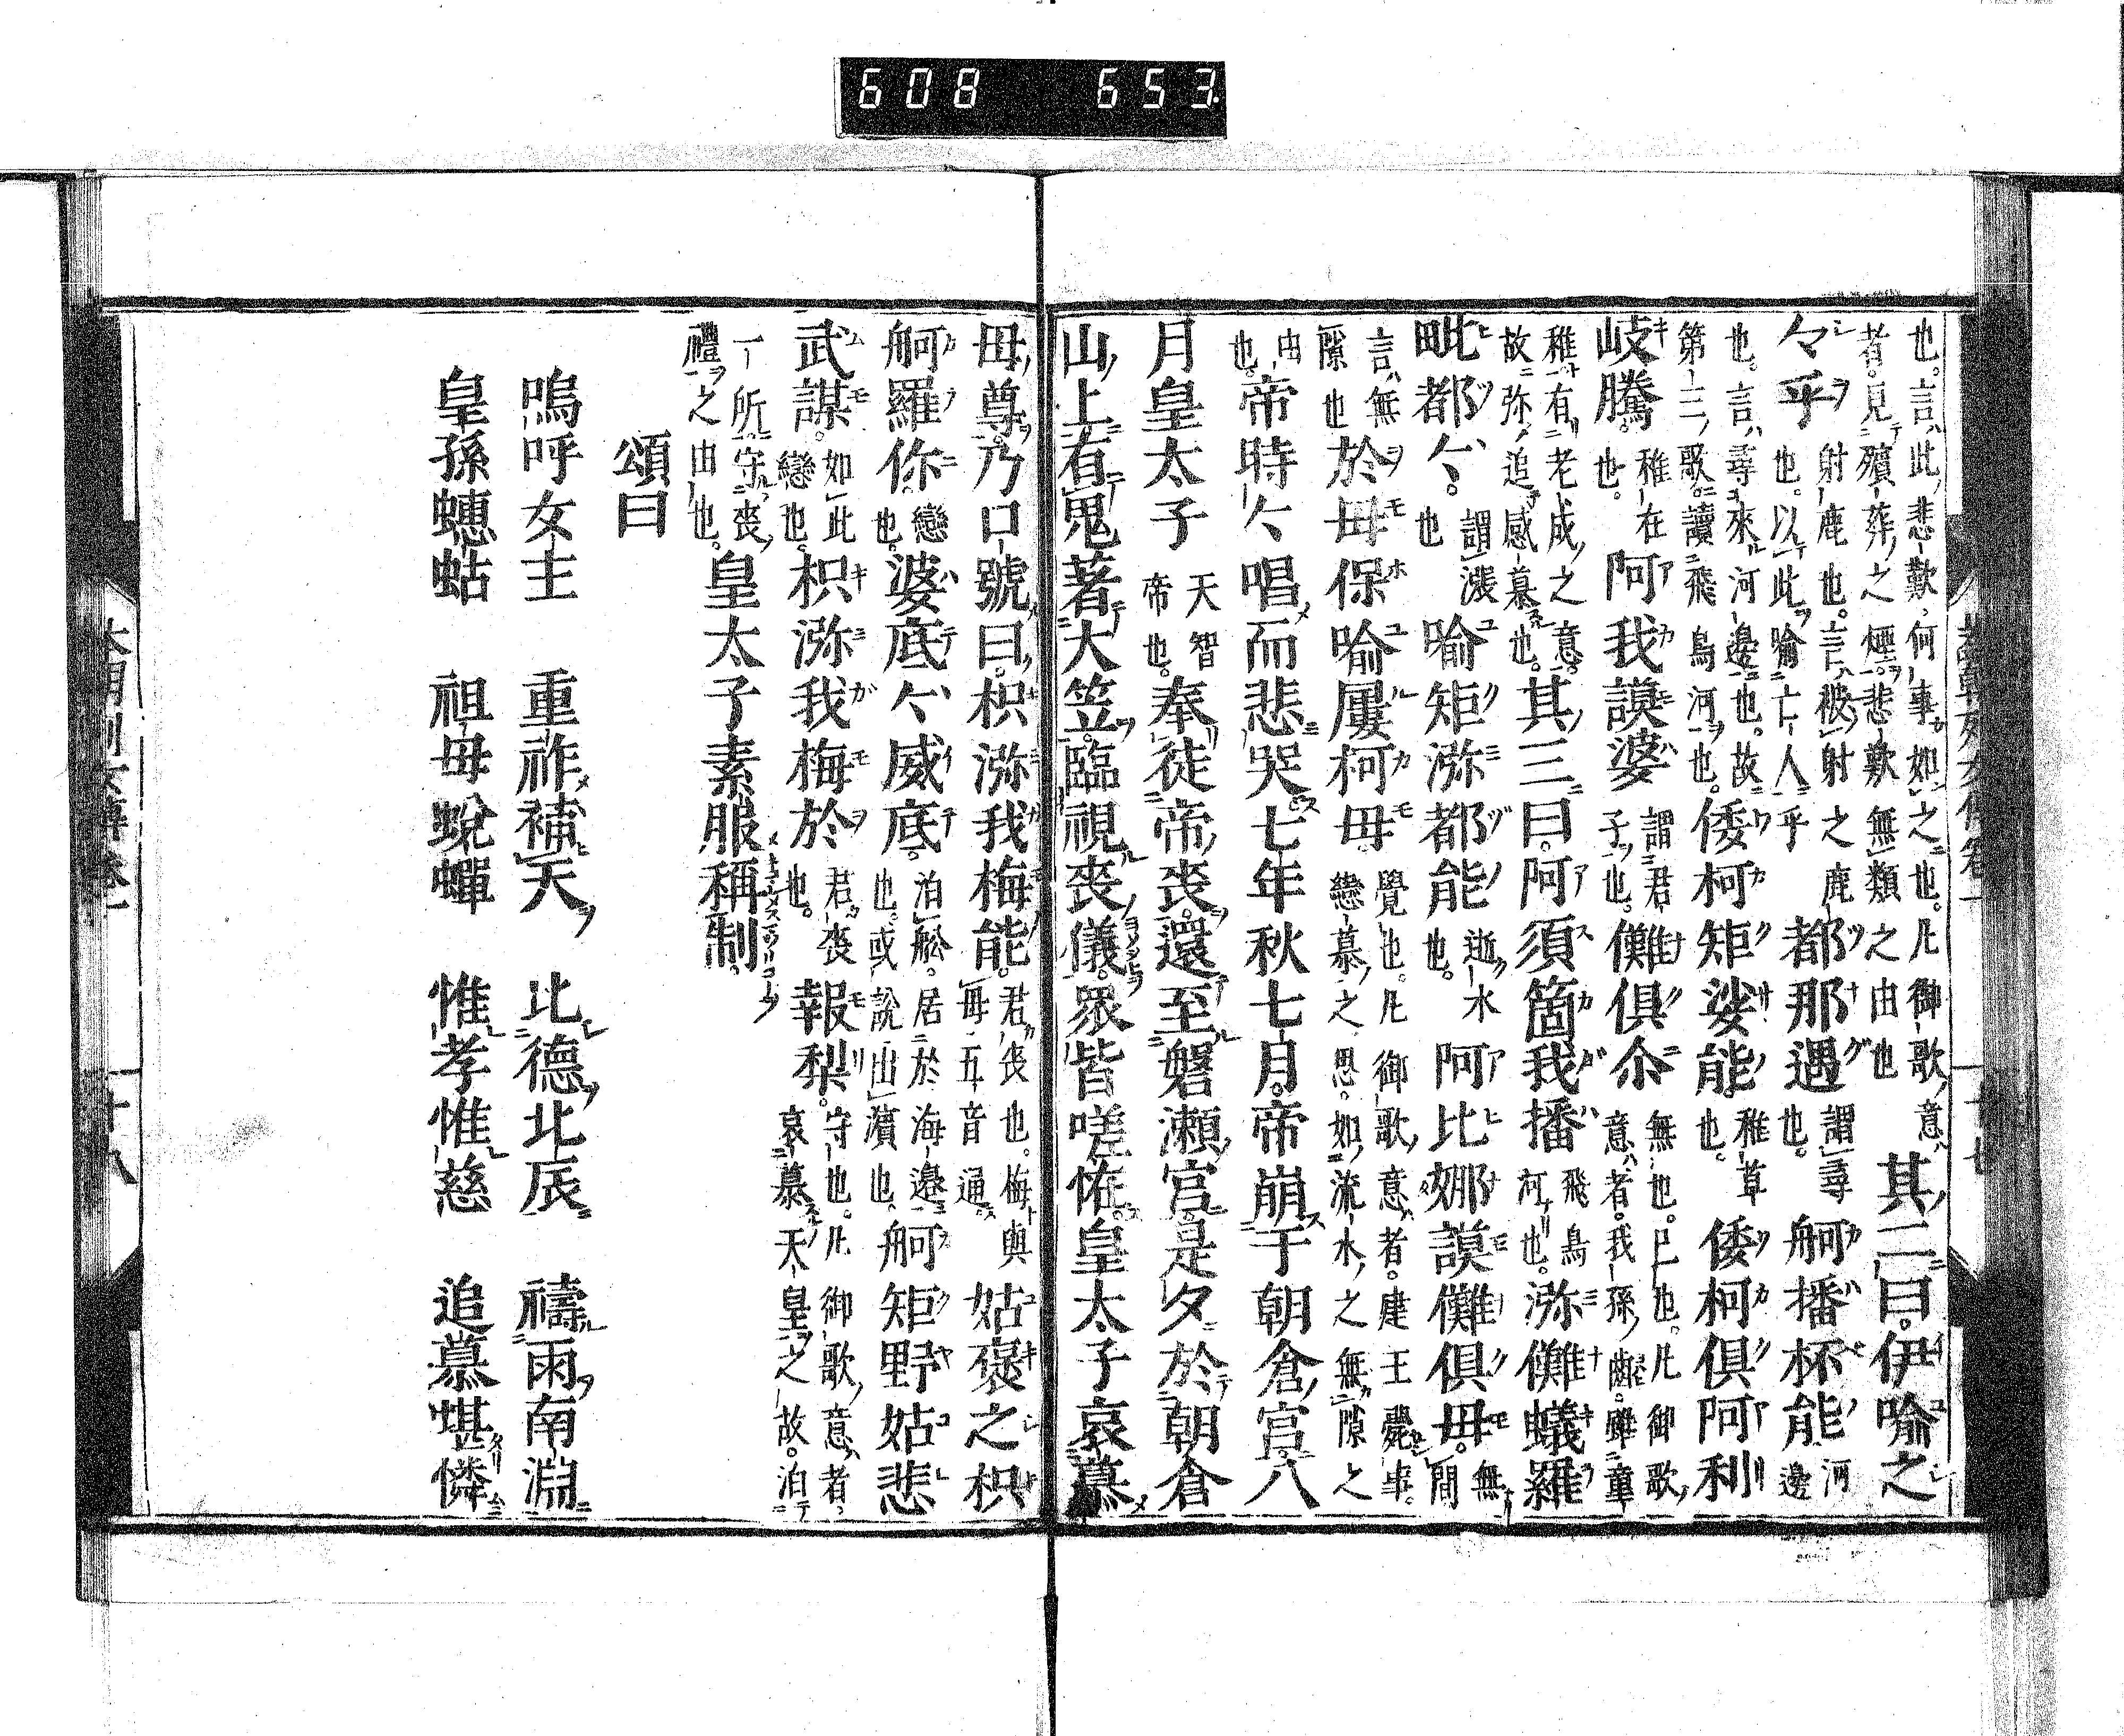 608 653
本朝列女傳卷一 十七
也。言此悲歎何事如之也。凡御歌意
者。見殯葬之煙。悲歎無類之由也
其二曰。伊喩之
々乎
射鹿也。言被射之鹿
也。以此喩亡人乎
都那遇
謂尋
也。
舸播杯能
河
邊
也。言尋來河邊也。故
第二歌讀飛鳥河也。
倭柯矩娑能
稚草
也。
倭柯俱阿利
岐騰。
稚在
也。
阿我謨婆
謂君
子也。
儺俱尒
無也。已也。凡御歌
意者。我孫幽。雖童
稚有老成之意。
故弥追感慕也。
其三曰。阿須箇我播
飛鳥
河也。
瀰儺蟻羅
毗都々。
謂漲
也
喩矩瀰都能
逝水
也。
阿比娜謨儺俱母。
無
間
言無
隙也
於母保喩屢柯母
覺也。凡御歌意者。建王薨事。
戀慕之思。如流水之無隙之
由
也。
帝時々唱而悲哭七年秋七月。帝崩于朝倉宮八
月皇太子
天智
帝也。
奉徙帝喪。還至磐瀬宮。是夕於朝倉
山上有鬼著大笠。臨視喪儀。眾皆嗟怪。皇太子哀慕
母尊。乃口號曰。枳瀰我梅能。
君喪也。梅與
毋五音通
姑裒之枳
舸羅你。
戀
也。
婆底々威底。
泊舩。居於海邊
也。或說出濱也。
舸矩野姑悲
武謀。
如此
戀也。
枳瀰我梅於
君喪
也。
報梨。
守也。凡御歌意者。
哀慕天皇之故。泊
一所守喪
禮之由也。
皇太子素服稱制。
頌曰
嗚呼女主 重祚補天 比德北辰 禱雨南淵
皇孫蟪蛄 祖母蛻蟬 惟孝惟慈 追慕堪憐
本朝列女傳卷一 十八